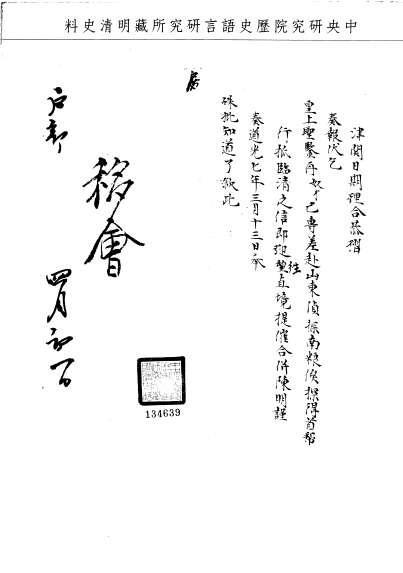 中央研究院歷史語言研究所藏明清史料
津關日期理合恭摺
奏報伏乞
皇上聖鑒再奴才已專差赴山東偵探南糧俟探得首幫
行抵臨清之信即迎往直境提催合併陳明謹
奏道光七年三月十三日奉
硃批知道了欽此
移會
戶部
四月初一日
134639